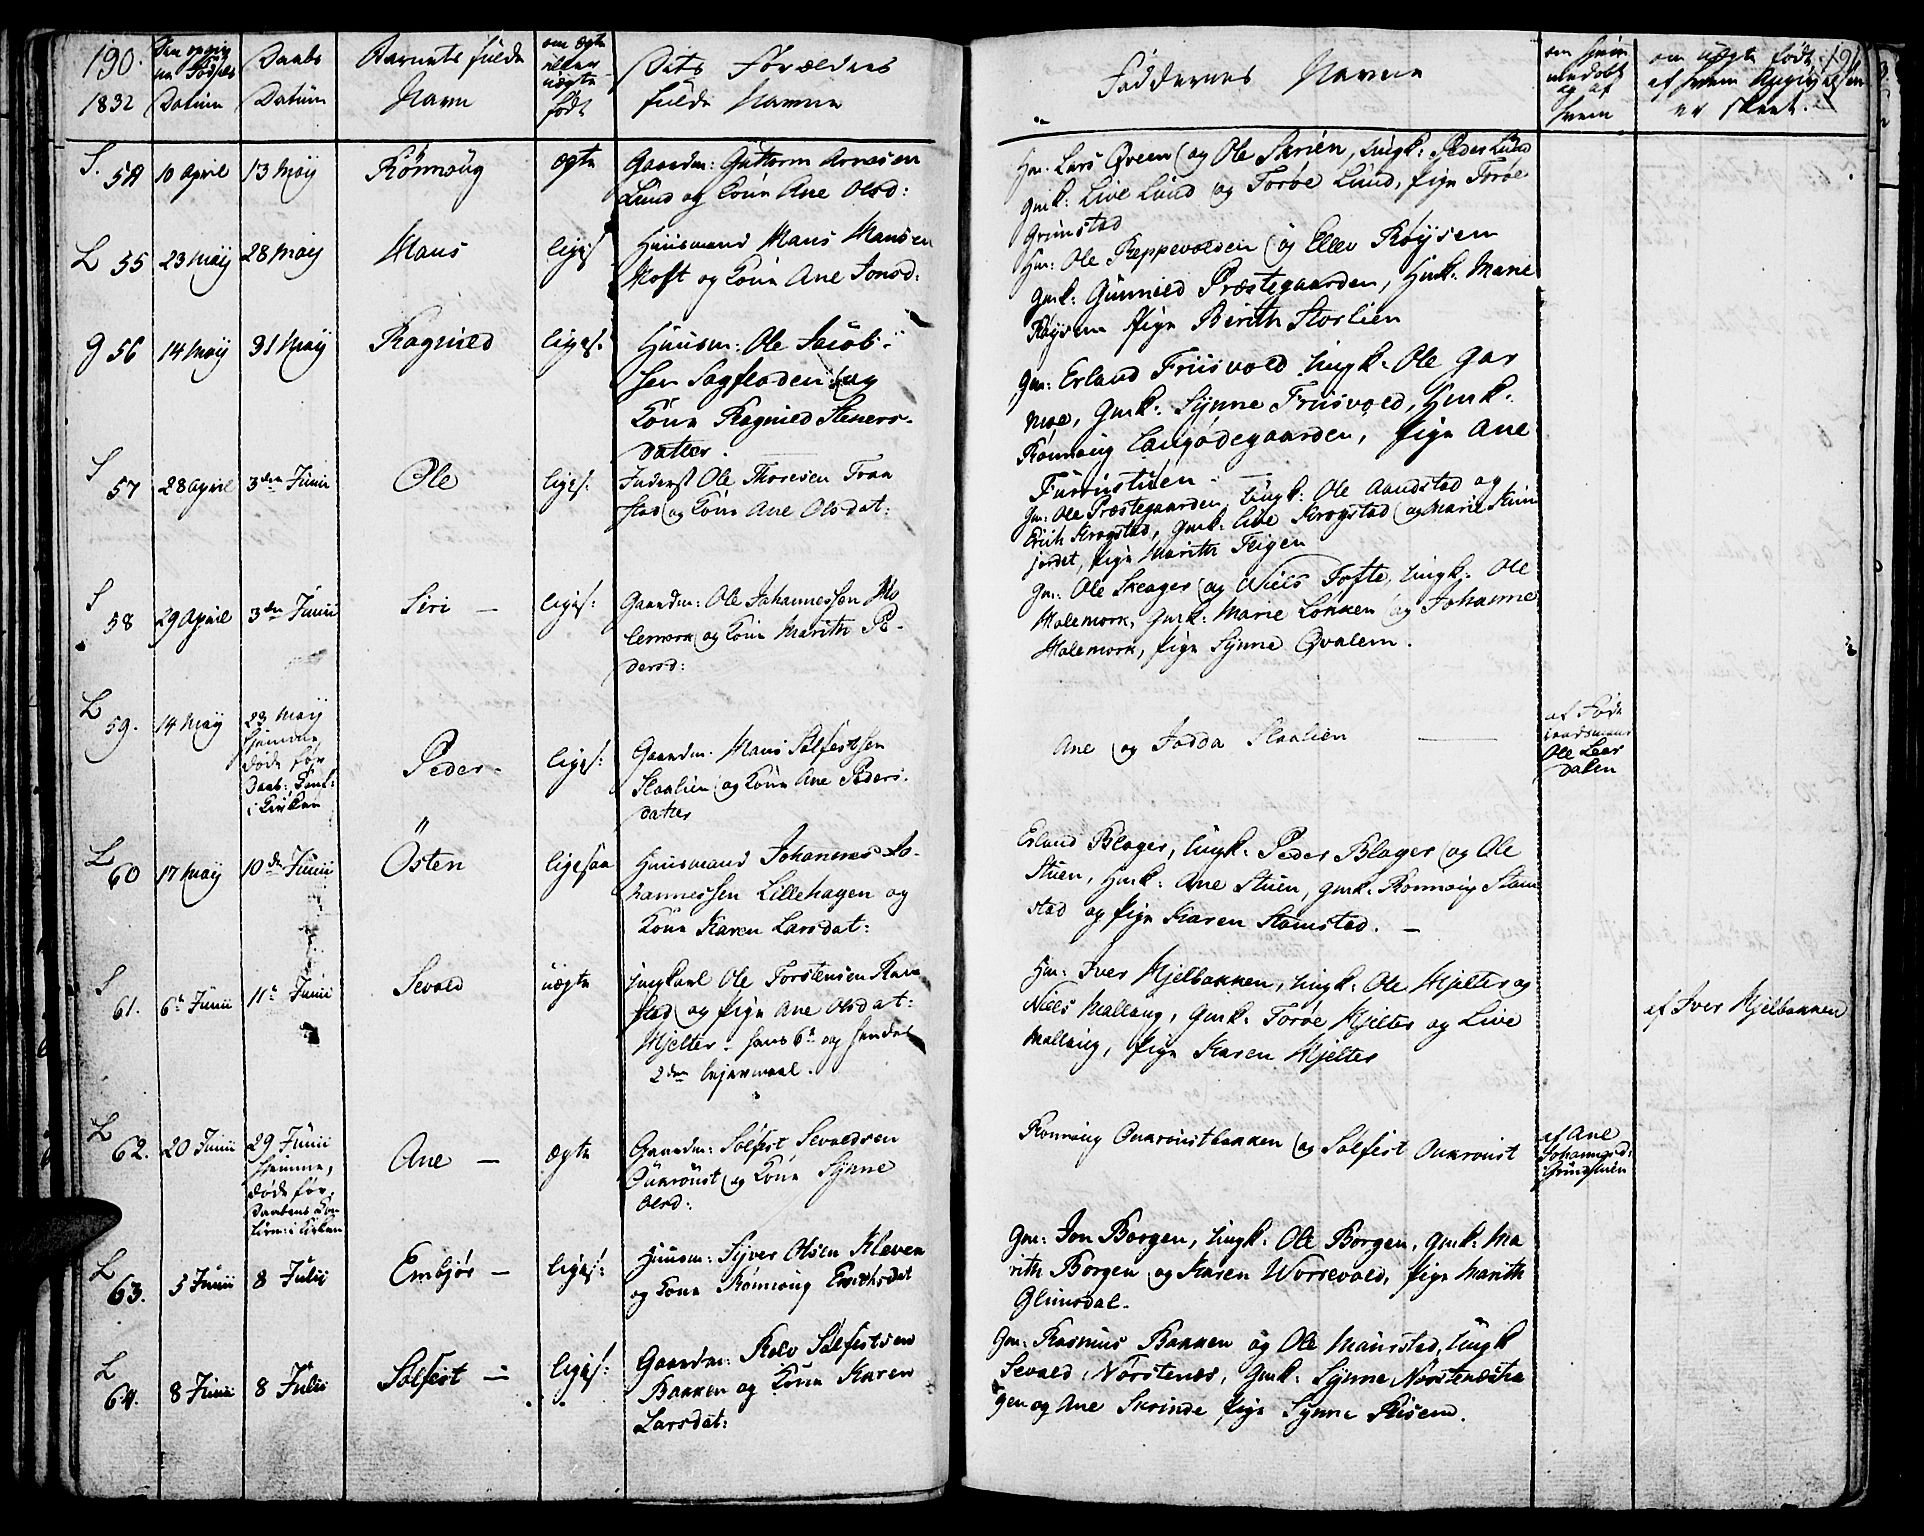 190.
1832
Den opgivne Fødsels Datum
Daabs Datum
Barnets fulde Navn
om ægte eller uægte født
Dets Forældres fulde Navne
Faddernes Navne
om hjemmedøbt og af hvem
om uægte født, af hvem Angivelsen er skeet.
191
S. 54 10 April 13 Maij Rønnoüg ægte Gaardm: Guttorm Arnesen
Lund og Kone Ane Olsd:
Hm. Lars Qveen og Ole Skrien, Ungk: Peder Lund
Gmk: Live Lund og Toroe Lund, Pige Toroe
Grimstad
L 55 23 Maij 28 Maij Hans liges Huusmand Hans Hansen
Moft og Kone Ane Jonsd:
Hm: Ole Reppevolden og Ellev Røÿsen
Gmk: Gunnild Præstegaarden, Hmk: Marie
Røysen Pige Berith Storlien
G 56 14 Maij 31 Maij Ragnild liges: Huusm: Ole Jacob-
sen Sagfloden og
Kone Ragnild Steners-
datter.
Gm: Erland Friisvold Ungk: Ole Gar
moe, Gmk: Synne Friisvold, Hmk:
Rønnoug Langødegaarden, Pige Ane
Furrustuen
S 57 28 April 3den Junii Ole liges: Inderst Ole Thoresen Fron
stad og Kone Ane Olsdat:
Gm: Ole Præstegaarden, Ungk: Ole Aandstad og
Erich Krogstad, Gmk: Live Krogstad og Marie
jordet, Pige Marith Teigen
S 58 29 April 3den Junii Siri — liges: Gaardm: Ole Johannessen Ho
lemork og Kone Marith Pe-
dersd:
Gm: Ole Skeager og Niels Tofte, Ungk: Ole
Holemork, Gmk: Marie Løkken og Johanne
Holemork, Pige Synne Qvalem.
L 59. 14 Maij 23 Maij
hjemme
døde før
Daab:
i Kirken
Peder- liges: Gaardm. Hans Solfestsen
Slaalien og Kone Ane Peders-
datter
Ane og Jodda Slaalien —
af
Ole Leer
dalen
L 60 17 Maij 10de Junii Østen ligesaa Huusmand Johannes Jo-
hannessen Lillehagen og
Kone Karen Larsdat:
Erland Blager, Ungk: Peder Blager og Ole
Stuen, Hmk: Ane Stuen, Gmk: Rønnoug Stam
stad og Pige Karen Stamstad. —
S 61. 6te Junii 11te Junii Sevald uægte Ungkarl Ole Torstensen Ram
stad og Pige Ane Olsdat:
Hjelter - hans 6te og hendes
2den Lejermaal.
Hm: Iver Hjelbakken, Ungk: Ole Hjelter og
Niels Mallaug, Gmk: Toroe Hjelter og Live
Mallaug, Pige Karen Hjelter
af Iver Hjelbakken
L 62. 20 Junii 29 Junii
hjemme,
døde før
Daabens Con
firm: i Kirken
Ane — ægte Gaardm: Solfest Sevaldsen
Onkroust og Kone Synne
Olsd:
Rønnoug Onkroustbakken og Solfest Onkroust
af Ane
Johannesd:
L 63. 5 Junii 8 Julii Embjør — liges: Huusm: Syver Olsen Kleven
og Kone Rønnoug
Gm: Jon Borgen, Ungk: Ole Borgen, Gmk: Ma
rith Borgen og Karen Worrevold, Pige Marith
Glimsdal.
L 64. 8 Junii 8 Julii Solfest — liges: Gaardm: Rolv Solfestsen
Bakken og Kone Karen
Larsdat:
Gm: Rasmus Bakken og Ole Maurstad, Ungk
Sevald Nørstenes, Gmk: Synne Nørstenesha
gen og Ane Skrinde, Pige Synne